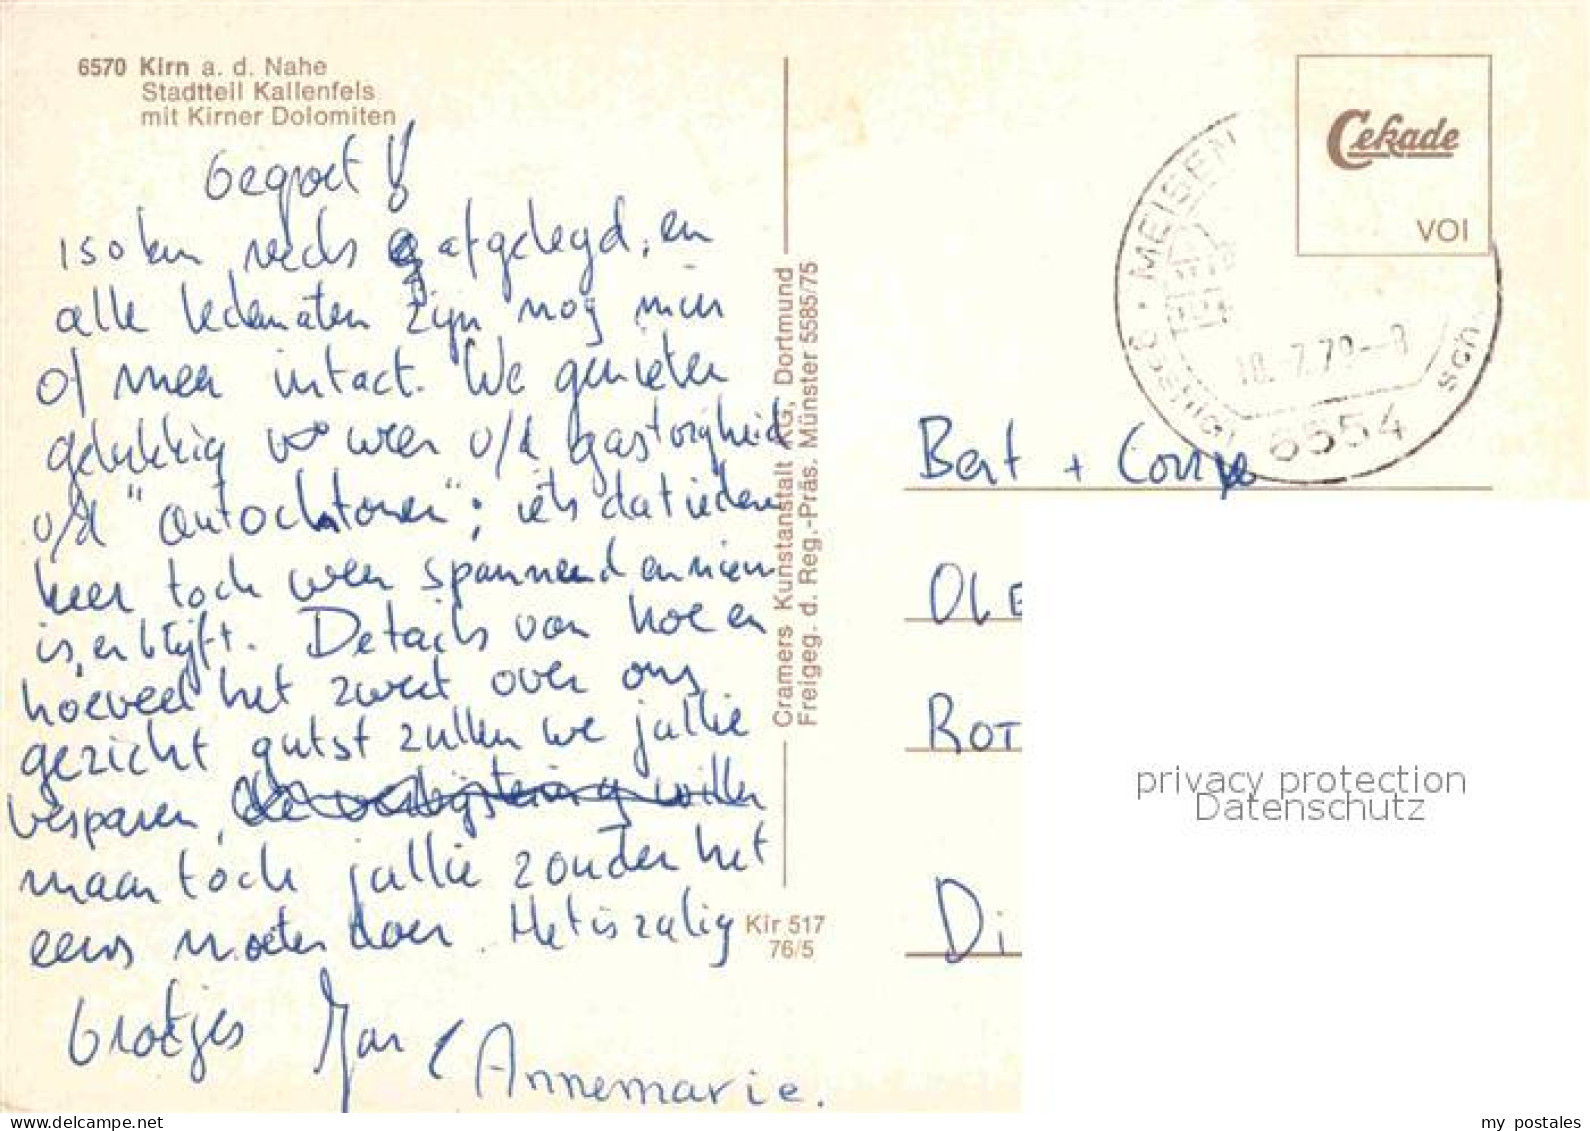 6570 Kirn a. d. Nahe
Stadtteil Kallenfels
mit Kirner Dolomiten
Gegroet!
150 km reeds afgelegd, en
alle ledematen zijn nog min
of meer intact. We genieten
gelukkig weer v/d gastvrijheid
v/d "autochtonen"; iets dat iedere
keer toch weer spannend en nieuw
is, en blijft. Details van hoe en
hoeveel het zweet over ons
gezicht gutst zullen we jullie
besparen,
maar toch jullie zouden het
eens moeten doen. Het is zalig
Groetjes Jan & Annemarie.
Cramers Kunstanstalt KG, Dortmund
Freigeg. d. Reg.-Präs. Münster 5585/75
Kir 517
76/5
Cekade
VOI
MEISEN
6554
Bert + Corrie
OLE
ROT
Di
privacy protection
Datenschutz
my postales